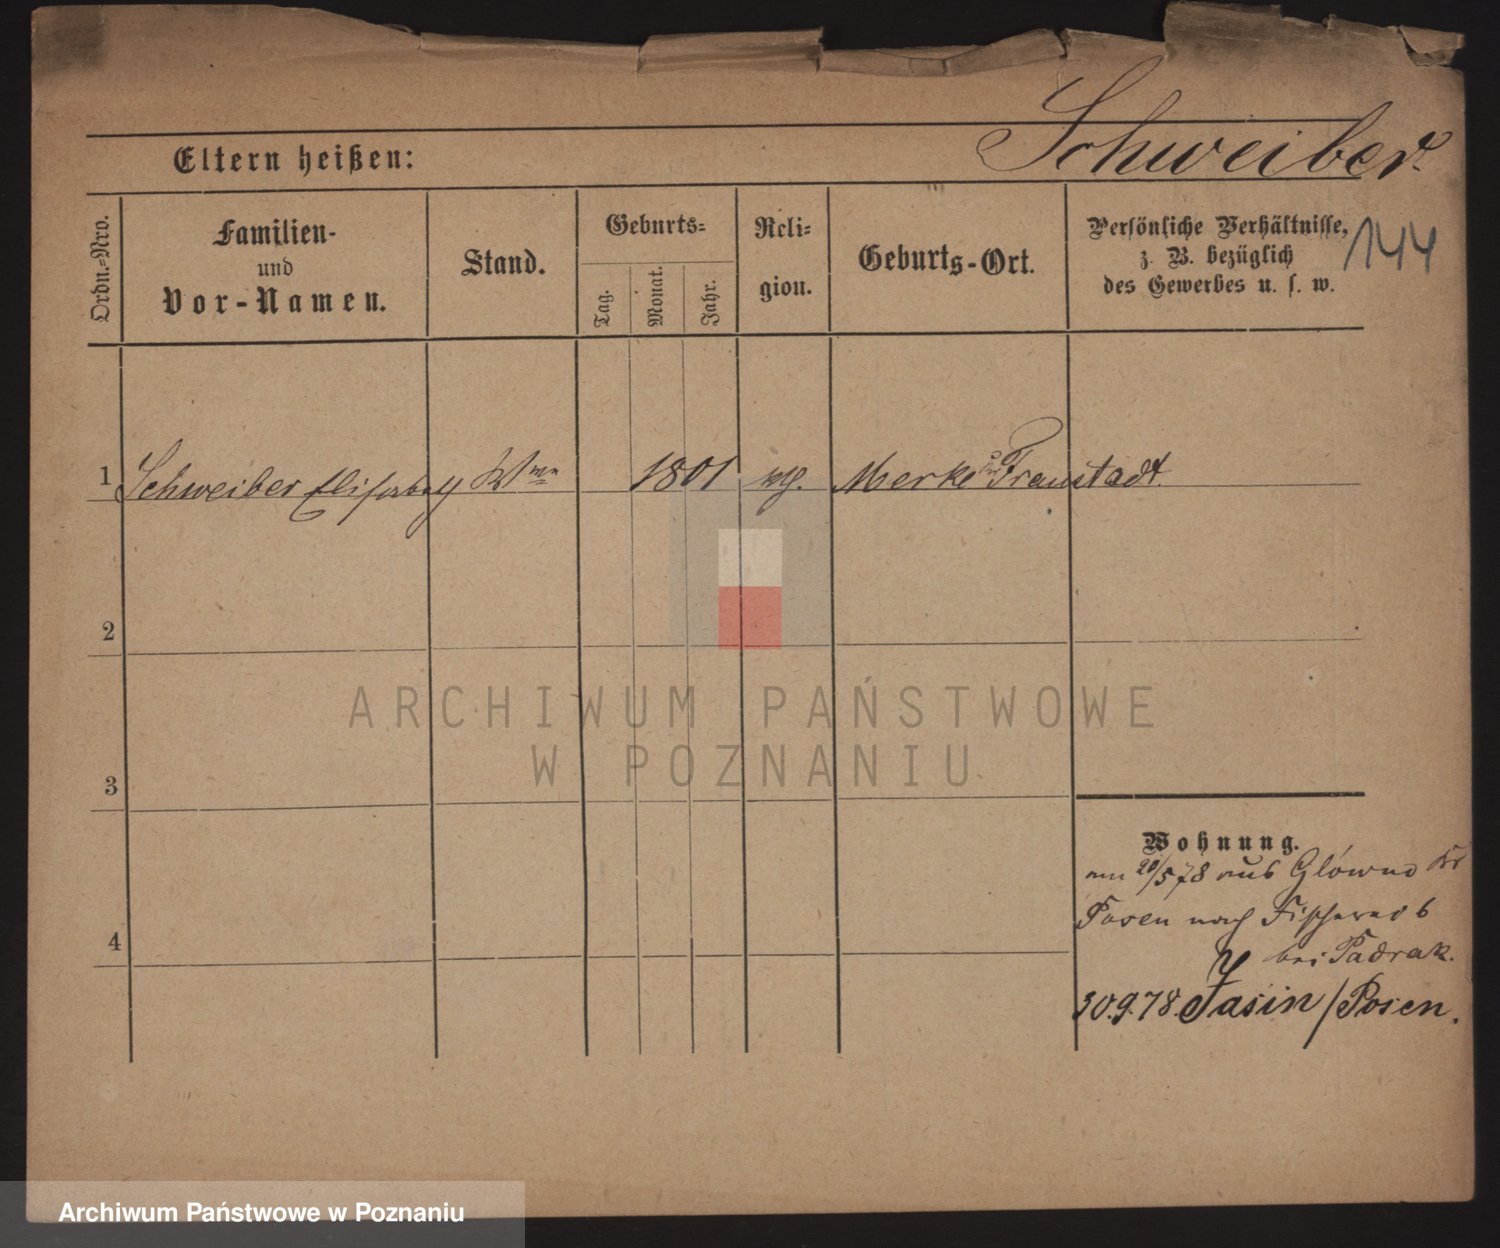 Schweiber.
Eltern heißen:
Ordn.-Nro.
Familien-
und
Vor-Namen.
Stand.
Geburts-
Tag.
Monat.
Jahr.
Reli-
gion.
Geburts-Ort.
Persönliche Verhältnisse,
z. B. bezüglich
des Gewerbes u. s. w.
144
1 Schweiber Elisabeth Wwe 1801 Merke Fraustadt.
2
3
4
Wohnung.
am 20/5 78 aus Glówno Kr
Posen nach Fischerei 6
bei Padrak.
30.9.78. Jasin / Posen.
ARCHIWUM PAŃSTWOWE
W POZNANIU
Archiwum Państwowe w Poznaniu